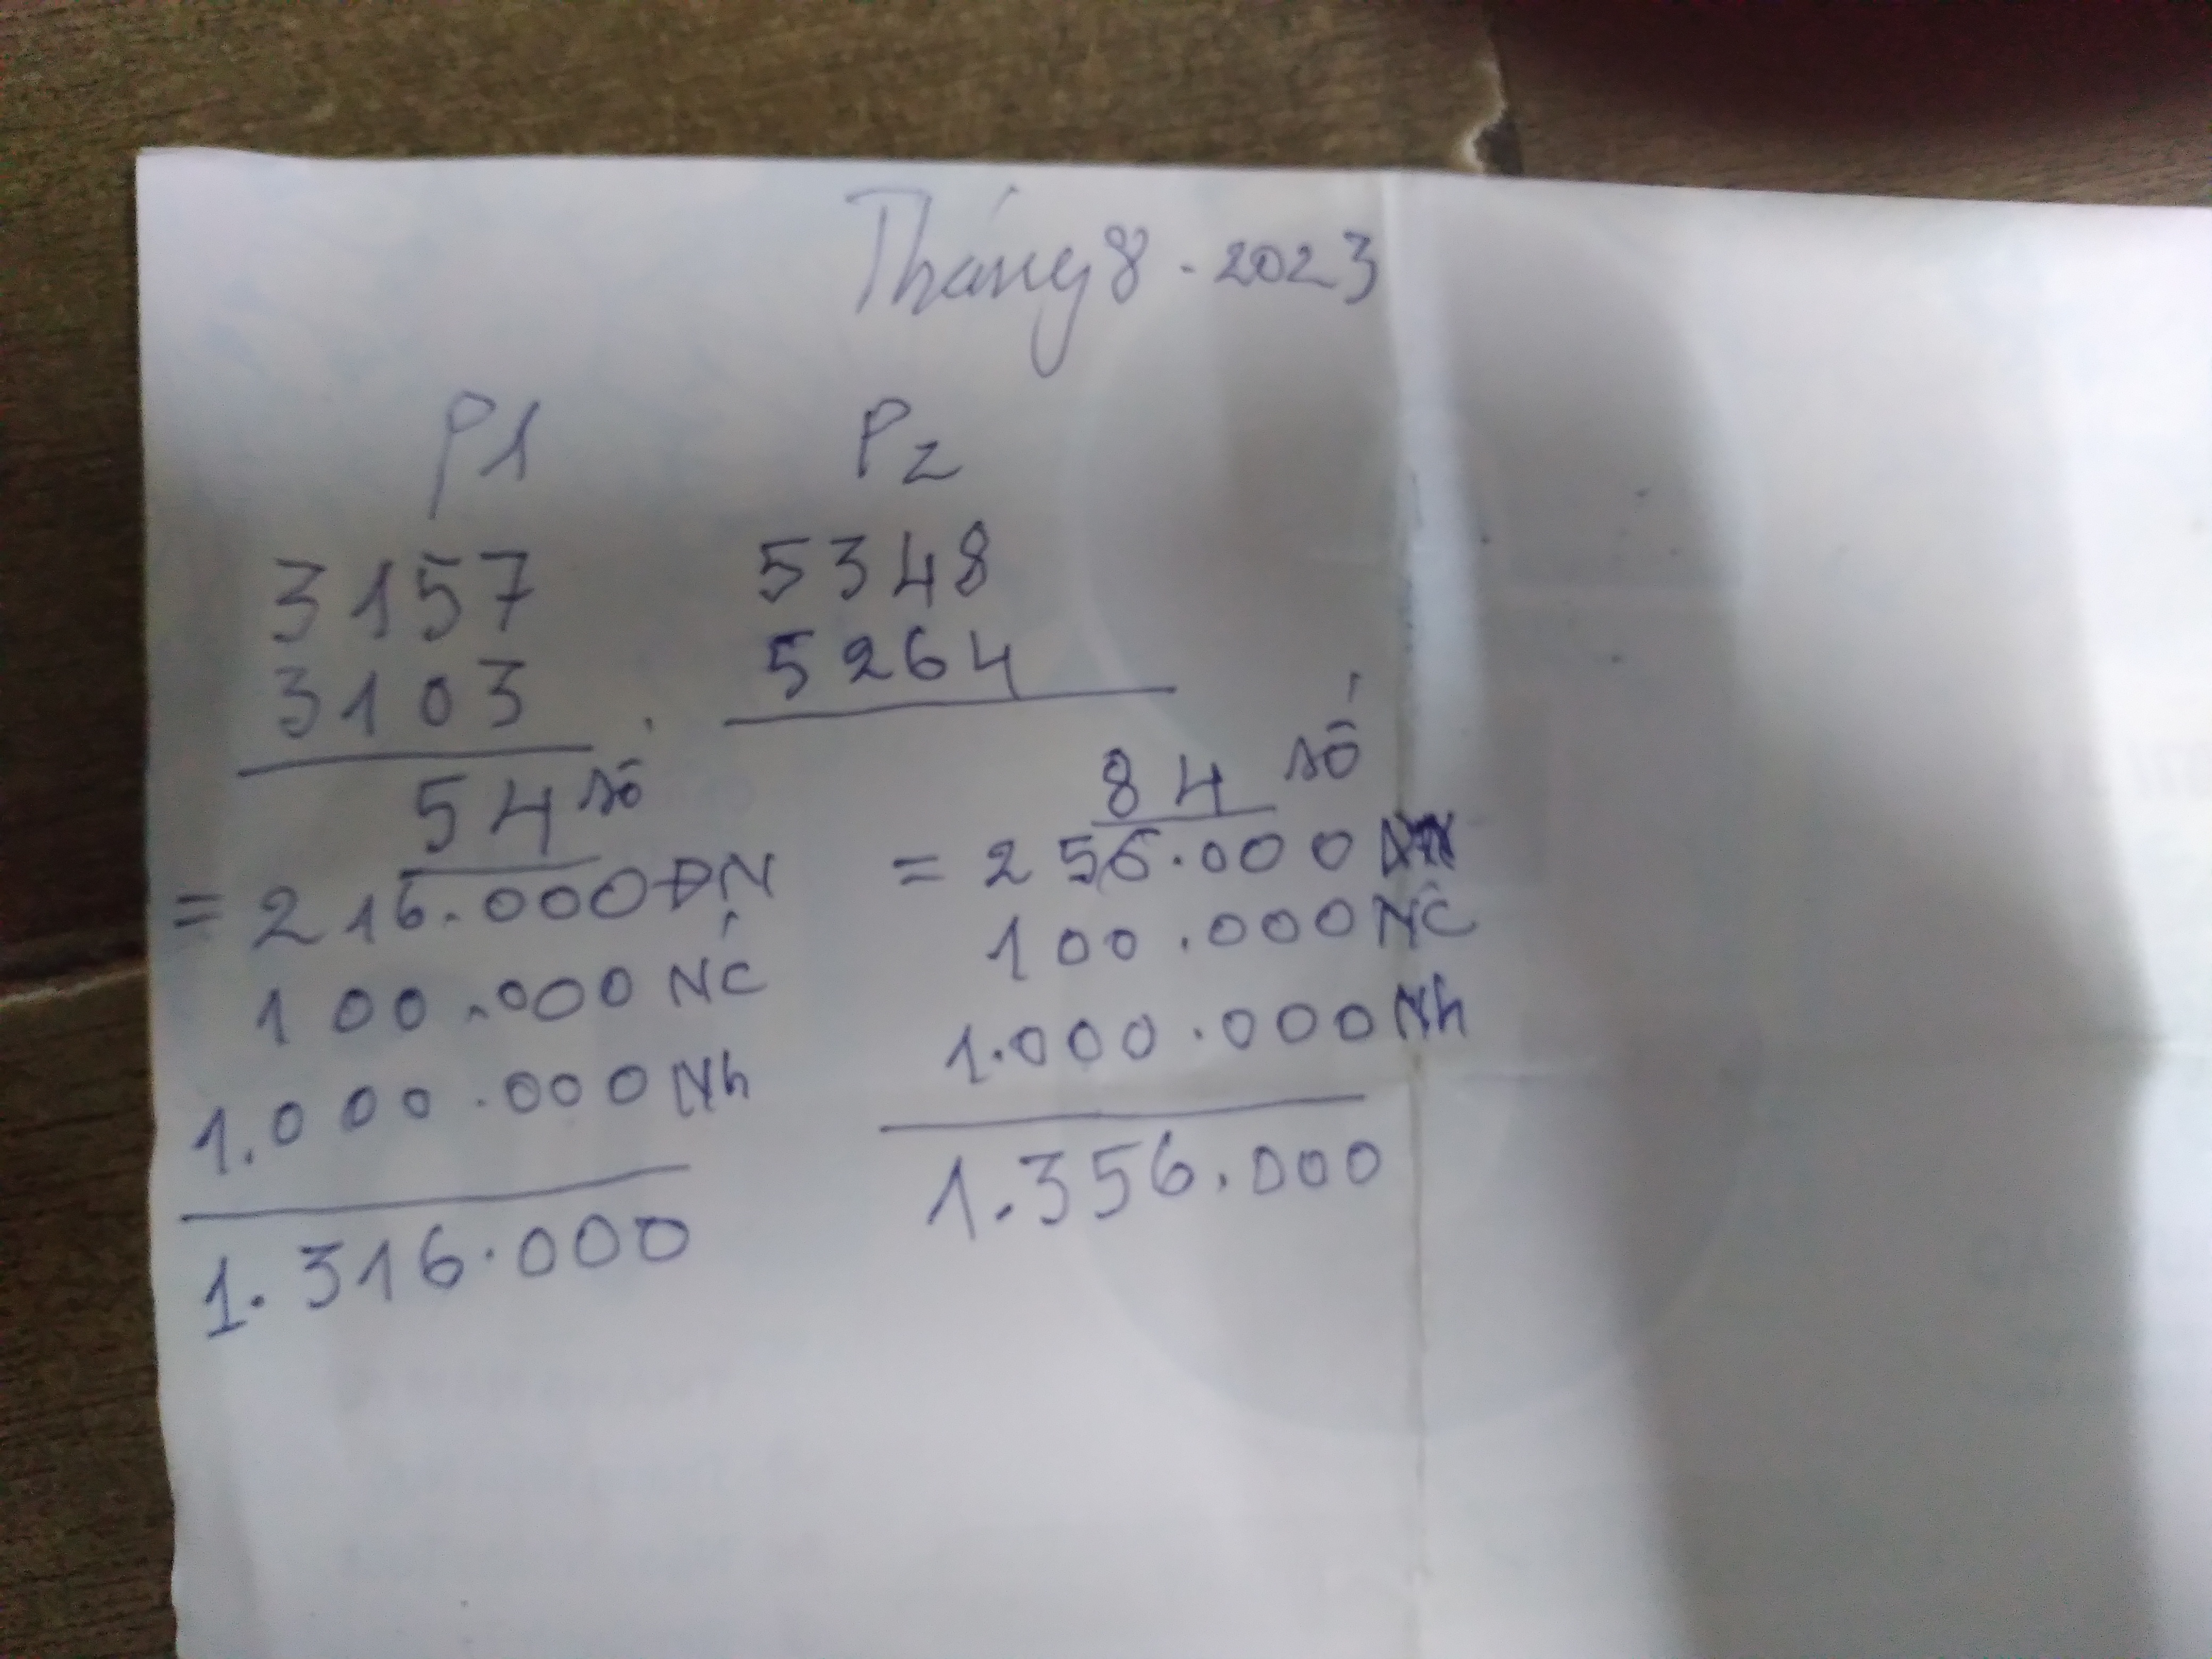 Tháng 8 - 2023
P1
3157
3103
54 số
= 216.000 ĐN
100.000 NC
1.000.000 Nh
1.316.000
P2
5348
5264
84 số
= 256.000
100.000 NC
1.000.000 Nh
1.356.000